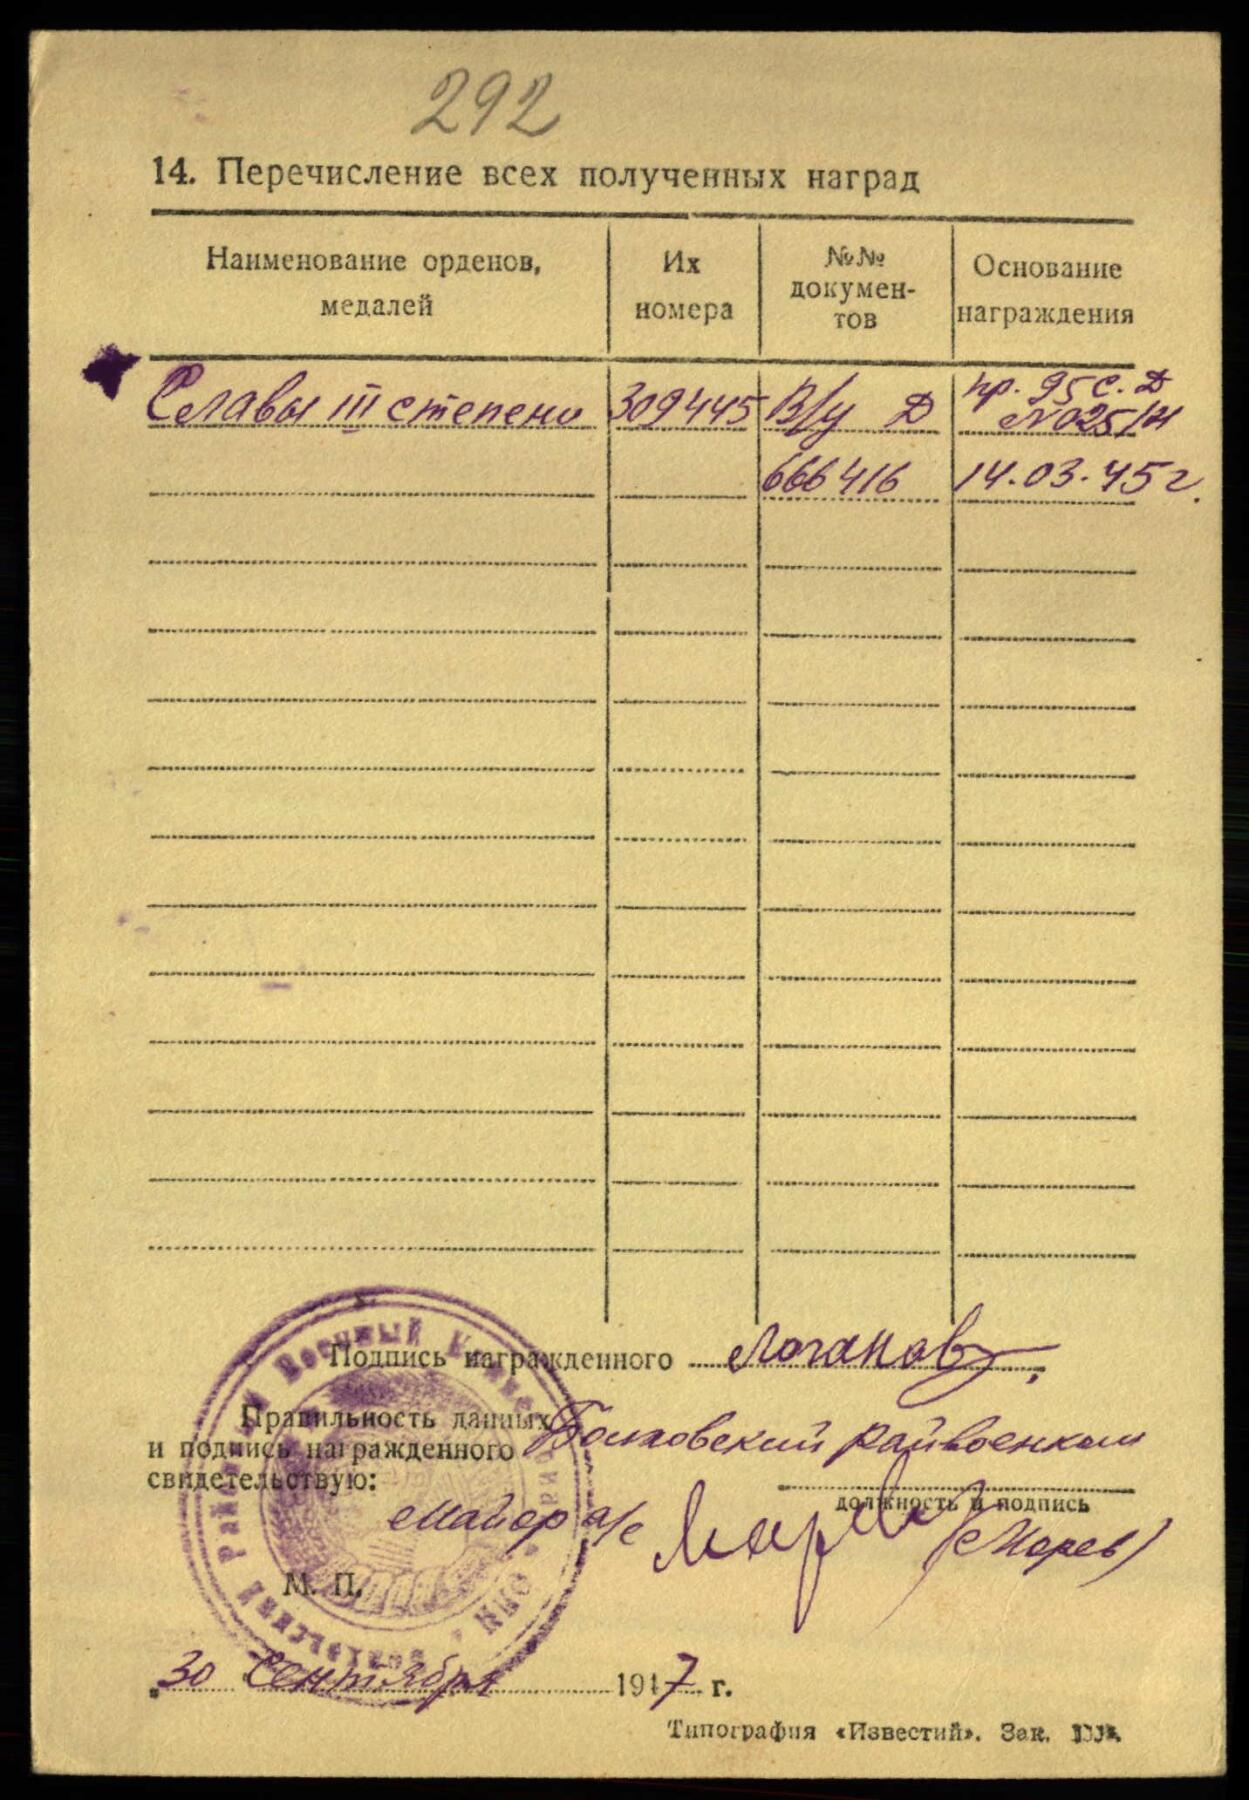 292
14. Перечисление всех полученных наград
Наименование орденов, медалей
Их номера
№№ документов
Основание награждения
Славы III степени 309445 В/у Д пр. 95 с. Д
№ 025/н
666416 14.03.45 г.
Подпись награжденного Логанов
Правильность данных
и подпись награжденного райвоенком
свидетельствую:
должность и подпись
майор а/с (Марев)
М. П.
30 Сентября 1947 г.
Типография «Известий». Зак.